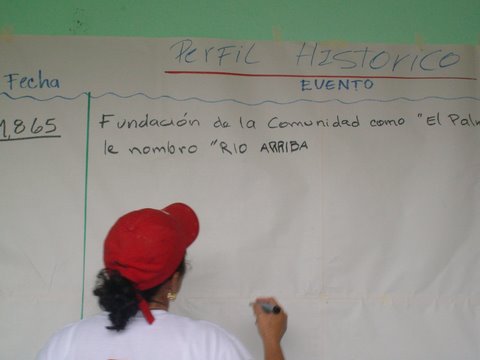 PERFIL HISTORICO
Fecha
EVENTO
1,865
Fundación de la Comunidad como "El Palm
le nombro "RIO ARRIBA